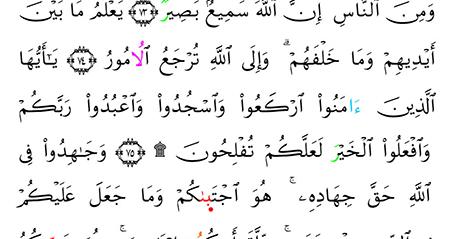 وَمِنَ ٱلنَّاسِ إِنَّ ٱللَّهَ سَمِيعٌۢ بَصِيرٌ ﴿٧٣﴾ يَعْلَمُ مَا بَيْنَ
أَيْدِيهِمْ وَمَا خَلْفَهُمْ ۗ وَإِلَى ٱللَّهِ تُرْجَعُ ٱلُامُورُ ﴿٧٤﴾ يَـٰٓأَيُّهَا
ٱلَّذِينَ ءَامَنُوا۟ ٱرْكَعُوا۟ وَٱسْجُدُوا۟ وَٱعْبُدُوا۟ رَبَّكُمْ
وَٱفْعَلُوا۟ ٱلْخَيْرَ لَعَلَّكُمْ تُفْلِحُونَ ۩ ﴿٧٥﴾ وَجَـٰهِدُوا۟ فِى
ٱللَّهِ حَقَّ جِهَادِهِۦ ۚ هُوَ ٱجْتَبَىٰكُمْ وَمَا جَعَلَ عَلَيْكُمْ